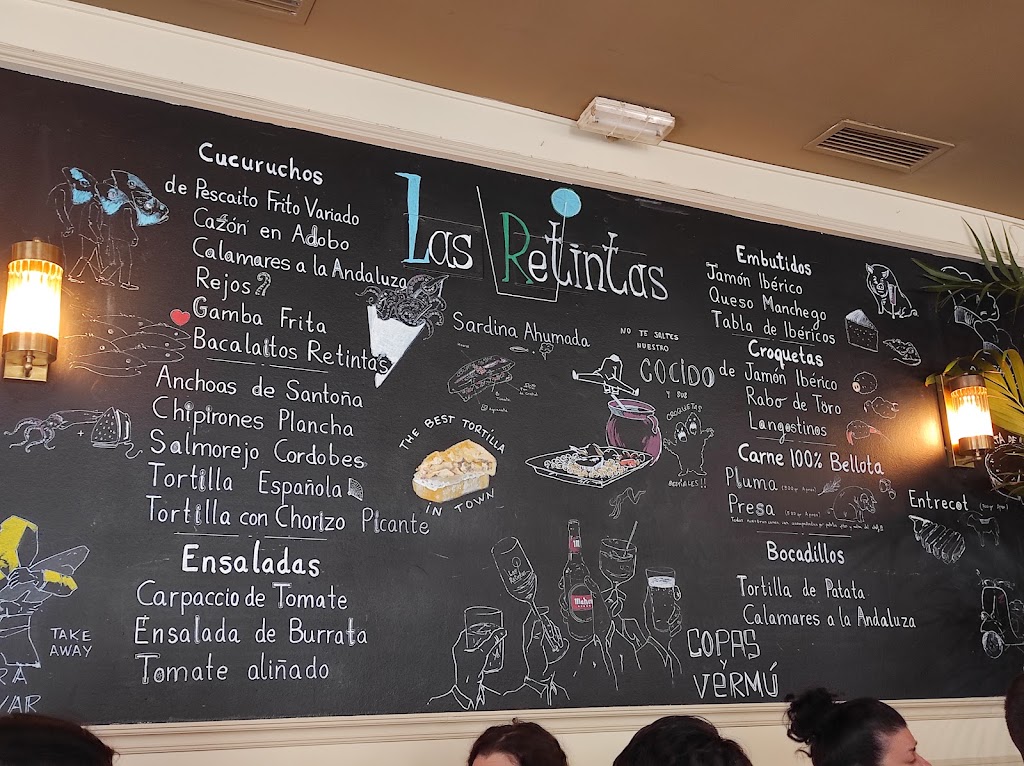 Las Retintas
Cucuruchos
de Pescaito Frito Variado
Cazón en Adobo
Calamares a la Andaluza
Rejos
Gamba Frita
Bacalaitos Retintas
Anchoas de Santoña
Chipirones Plancha
Salmorejo Cordobes
Tortilla Española
Tortilla con Chorizo Picante
Ensaladas
Carpaccio de Tomate
Ensalada de Burrata
Tomate aliñado
TAKE
AWAY
Sardina Ahumada
THE BEST TORTILLA
IN TOWN
NO TE SALTES
NUESTRO
COCIDO
Y SUS
CROQUETAS
Mahou
COPAS
Y
VERMÚ
Embutidos
Jamón Ibérico
Queso Manchego
Tabla de Ibéricos
Croquetas
de Jamón Ibérico
Rabo de Toro
Langostinos
Carne 100% Bellota
Pluma
Presa
Entrecot
Bocadillos
Tortilla de Patata
Calamares a la Andaluza